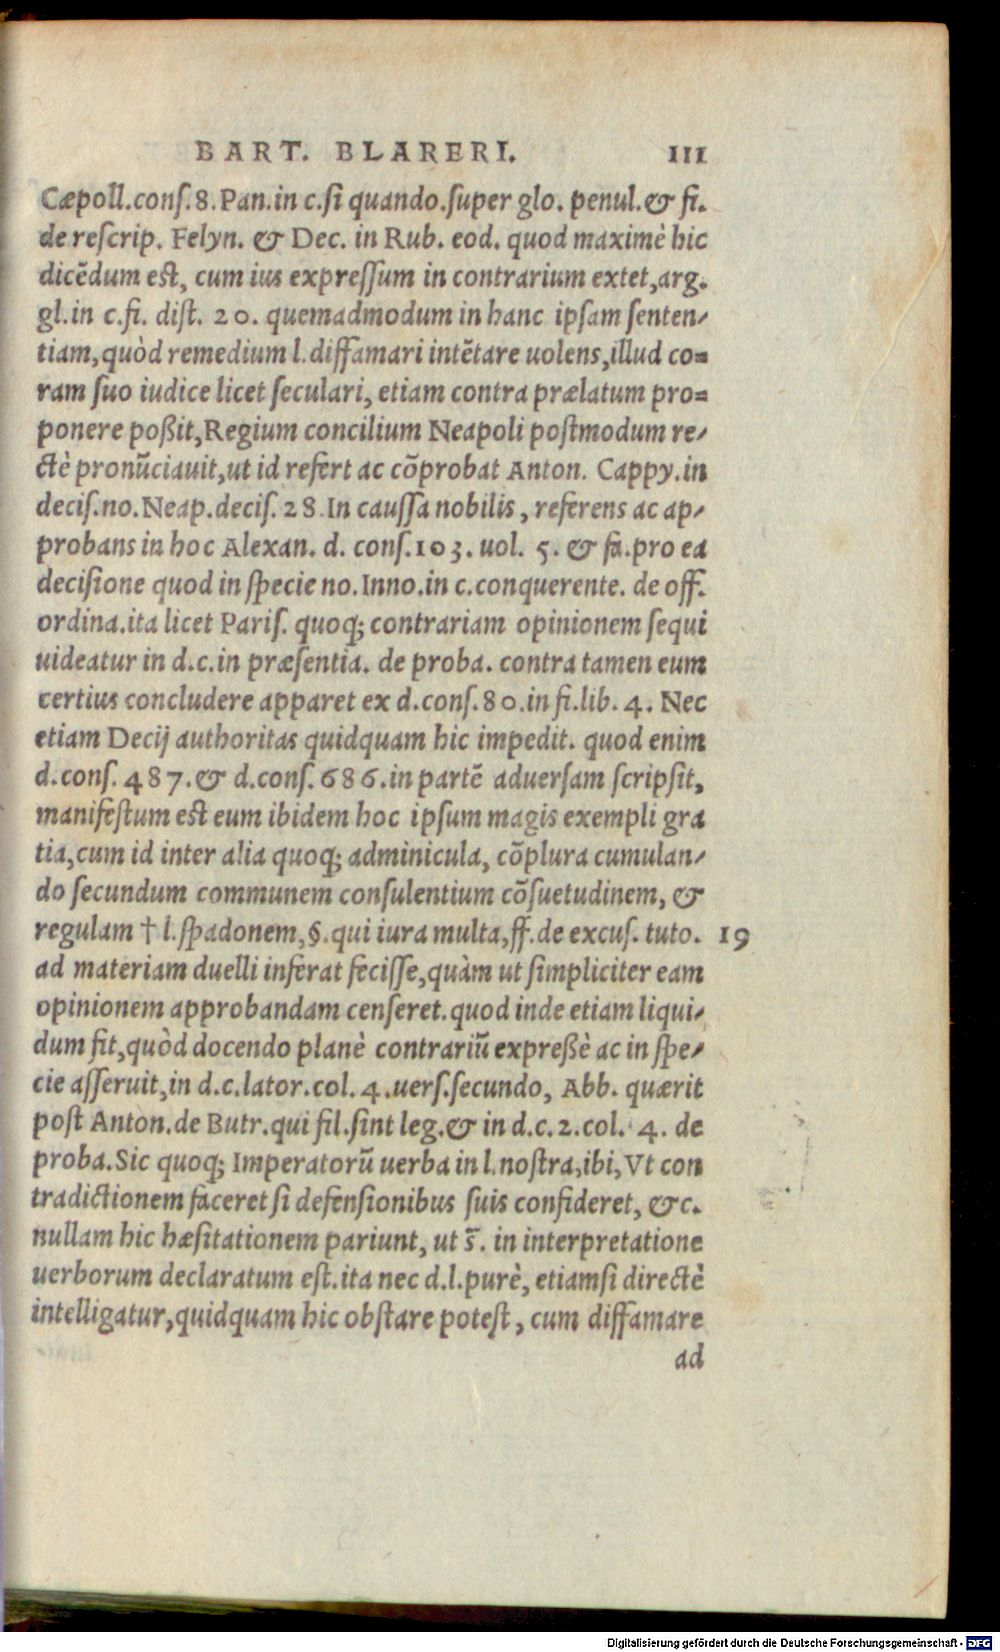 BART. BLARERI. 111
Cæpoll.conſ.8.Pan.in c.ſi quando.ſuper glo. penul.& fi.
de reſcrip. Felyn. & Dec. in Rub. eod. quod maximè hic
dicẽdum est, cum ius expreſſum in contrarium extet,arg.
gl.in c.fi. diſt. 20. quemadmodum in hanc ipſam ſenten-
tiam,quòd remedium l.diffamari intẽtare uolens,illud co=
ram ſuo iudice licet ſeculari, etiam contra prælatum pro=
ponere poßit,Regium concilium Neapoli poſtmodum re-
ctè pronũciauit,ut id refert ac cõprobat Anton. Cappy.in
deciſ.no.Neap.deciſ.28.In cauſſa nobilis, referens ac ap-
probans in hoc Alexan. d. conſ.103. uol. 5. & fa.pro ea
deciſione quod in ſpecie no.Inno.in c.conquerente. de off.
ordina.ita licet Pariſ. quoq; contrariam opinionem ſequi
uideatur in d.c.in præſentia. de proba. contra tamen eum
certius concludere apparet ex d.conſ.80.in fi.lib.4. Nec
etiam Decij authoritas quidquam hic impedit. quod enim
d.conſ. 487.& d.conſ.686.in partẽ aduerſam ſcripſit,
manifeſtum est eum ibidem hoc ipſum magis exempli gra
tia,cum id inter alia quoq; adminicula, cõplura cumulan-
do ſecundum communem conſulentium cõſuetudinem, &
regulam † l.ſpadonem,§.qui iura multa,ff.de excuſ. tuto. 19
ad materiam duelli inferat feciſſe,quàm ut ſimpliciter eam
opinionem approbandam cenſeret.quod inde etiam liqui-
dum fit,quòd docendo planè contrariũ expreßè ac in ſpe-
cie aſſeruit,in d.c.lator.col.4.uerſ.ſecundo, Abb. quærit
poſt Anton.de Butr.qui fil.ſint leg.& in d.c.2.col. 4. de
proba.Sic quoq; Imperatorũ uerba in l.noſtra,ibi,Vt con
tradictionem faceret ſi defenſionibus ſuis confideret, &c.
nullam hic hæſitationem pariunt, ut s̄. in interpretatione
uerborum declaratum est.ita nec d.l.purè, etiamſi directè
intelligatur,quidquam hic obſtare poteſt, cum diffamare
ad
Digitalisierung gefördert durch die Deutsche Forschungsgemeinschaft - DFG